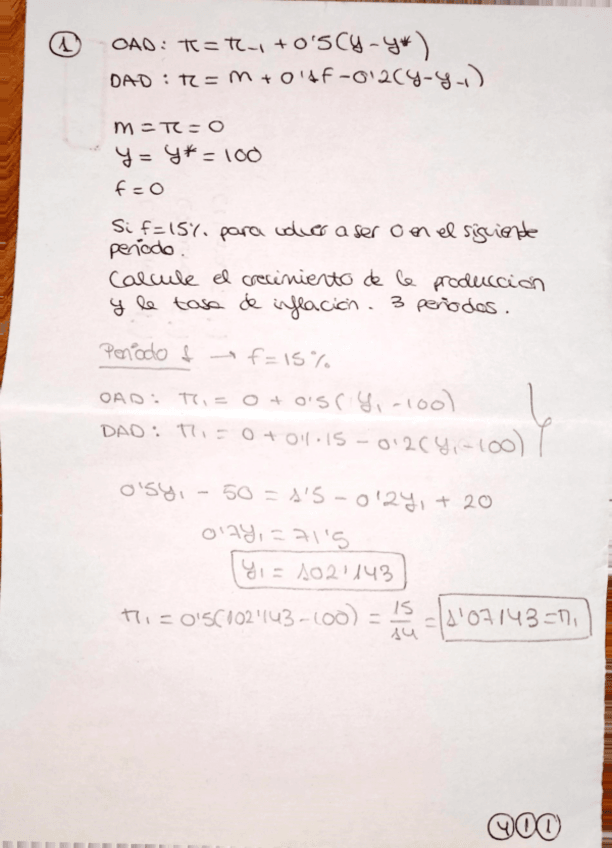 ① OAD: π = π₋₁ + 0'5(y - y*)
DAD: π = m + 0'1f - 0'2(y - y₋₁)
m = π = 0
y = y* = 100
f = 0
Si f = 15% para volver a ser 0 en el siguiente
período.
Calcule el crecimiento de la producción
y la tasa de inflación. 3 períodos.
Período 1 → f = 15%
OAD: π₁ = 0 + 0'5(y₁ - 100)
DAD: π₁ = 0 + 0'1·15 - 0'2(y₁ - 100)
0'5y₁ - 50 = 1'5 - 0'2y₁ + 20
0'7y₁ = 71'5
y₁ = 102'143
π₁ = 0'5(102'143 - 100) = 15/14 = 1'07143 = π₁
411